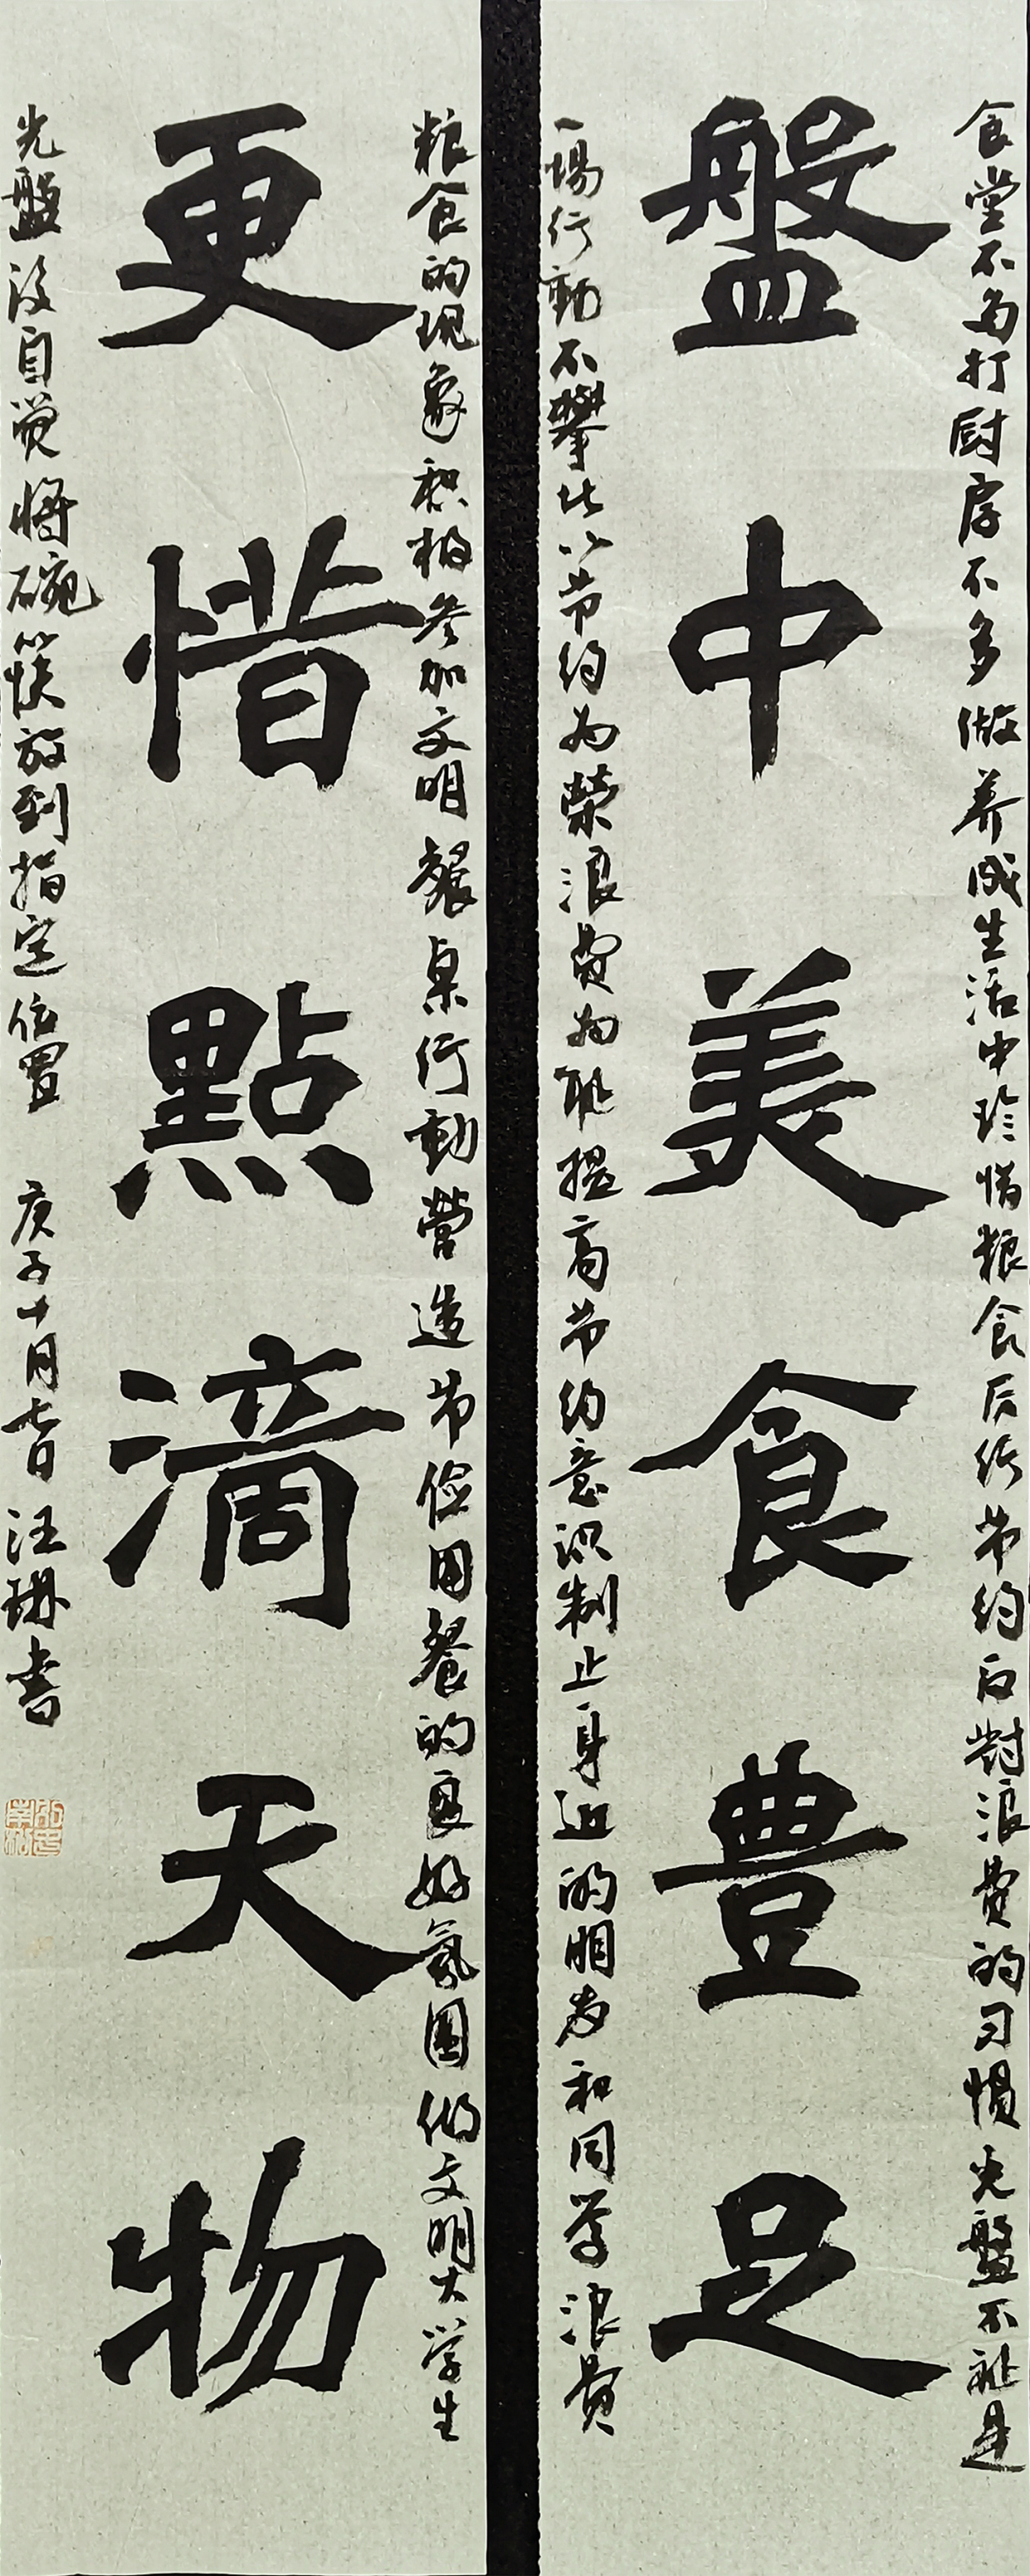 食堂不多打厨房不多做养成生活中珍惜粮食厉行节约反對浪費的习惯光盤不祇是
盤中美食豊足
一場行動不攀比以节约为荣浪費为耻提高节约意识制止身边的朋友和同学浪費
粮食的现象积极参加文明餐桌行動营造节俭用餐的良好氛圍做文明大学生
更惜點滴天物
光盤後自觉将碗筷放到指定位置 庚子十月 汪琳書